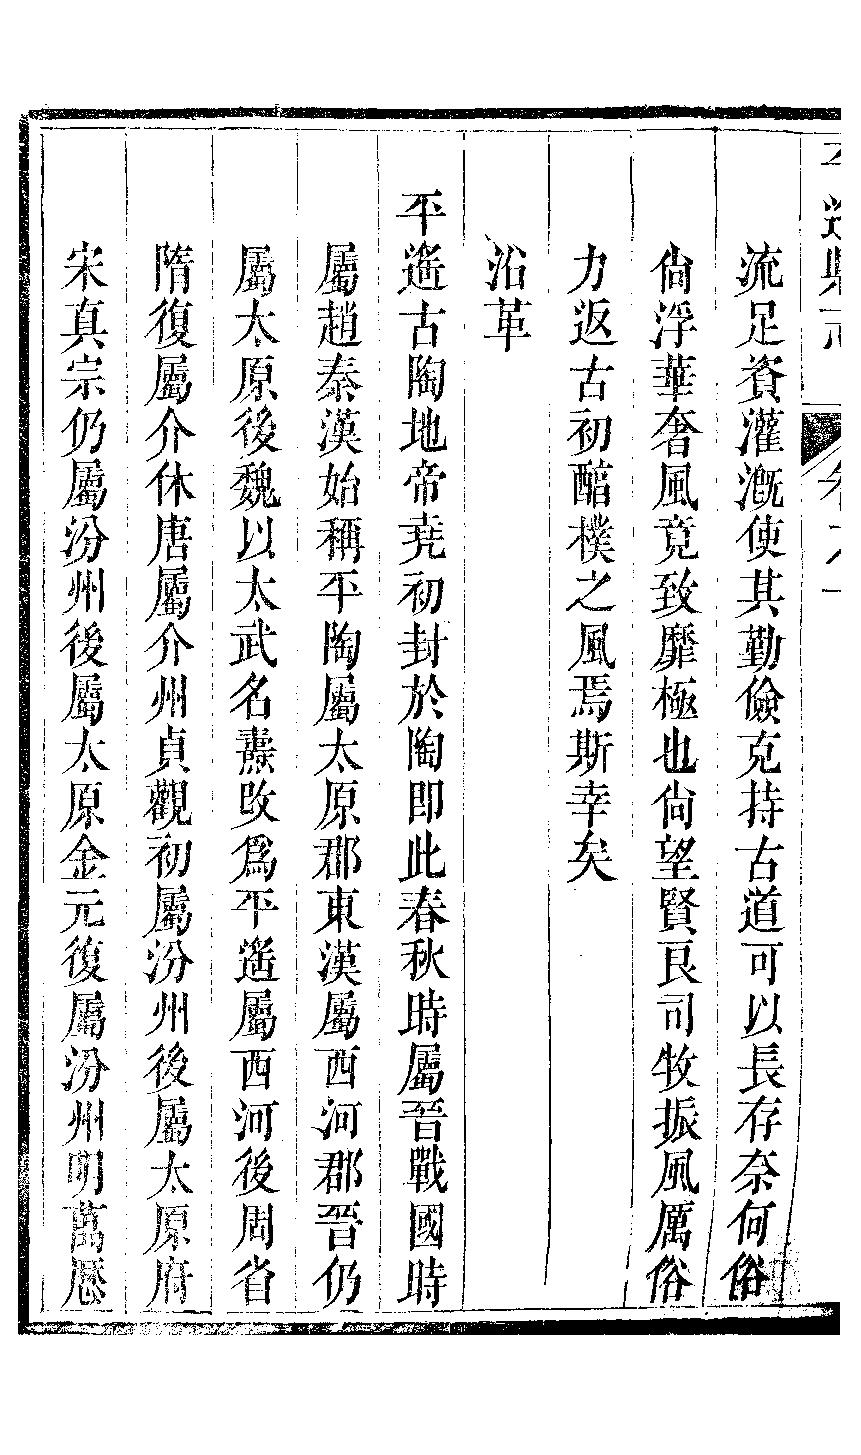 流足資灌漑使其勤儉克持古道可以長存奈何俗
尙浮華奢風竟致靡極也尙望賢良司牧振風厲俗
力返古初醕樸之風焉斯幸矣
沿革
平遙古陶地帝堯初封於陶即此春秋時屬晉戰國時
屬趙秦漢始稱平陶屬太原郡東漢屬西河郡晉仍
屬太原後魏以太武名燾改爲平遙屬西河後周省
隋復屬介休唐屬介州貞觀初屬汾州後屬太原府
宋真宗仍屬汾州後屬太原金元復屬汾州明萬歷